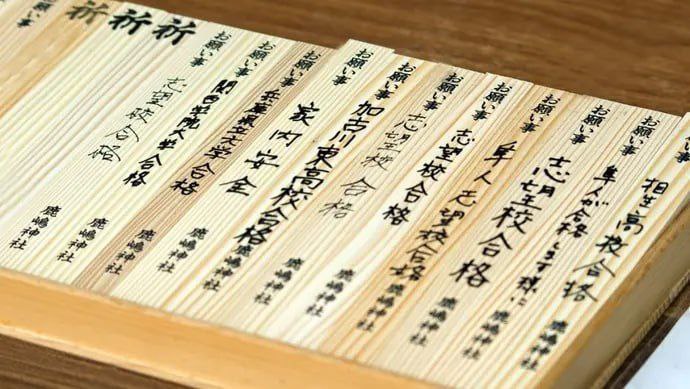 お願い事
相生高校合格
鹿嶋神社
お願い事
隼人が合格します様に
鹿嶋神社
お願い事
志望校合格
鹿嶋神社
お願い事
隼人志望校合格
鹿嶋神社
お願い事
志望校合格
鹿嶋神社
お願い事
志望校合格
鹿嶋神社
お願い事
加古川東高校合格
鹿嶋神社
お願い事
家内安全
鹿嶋神社
お願い事
兵庫県立大学合格
鹿嶋神社
お願い事
関西学院大学合格
鹿嶋神社
お願い事
志望校合格
鹿嶋神社
祈
祈
祈
お願い事